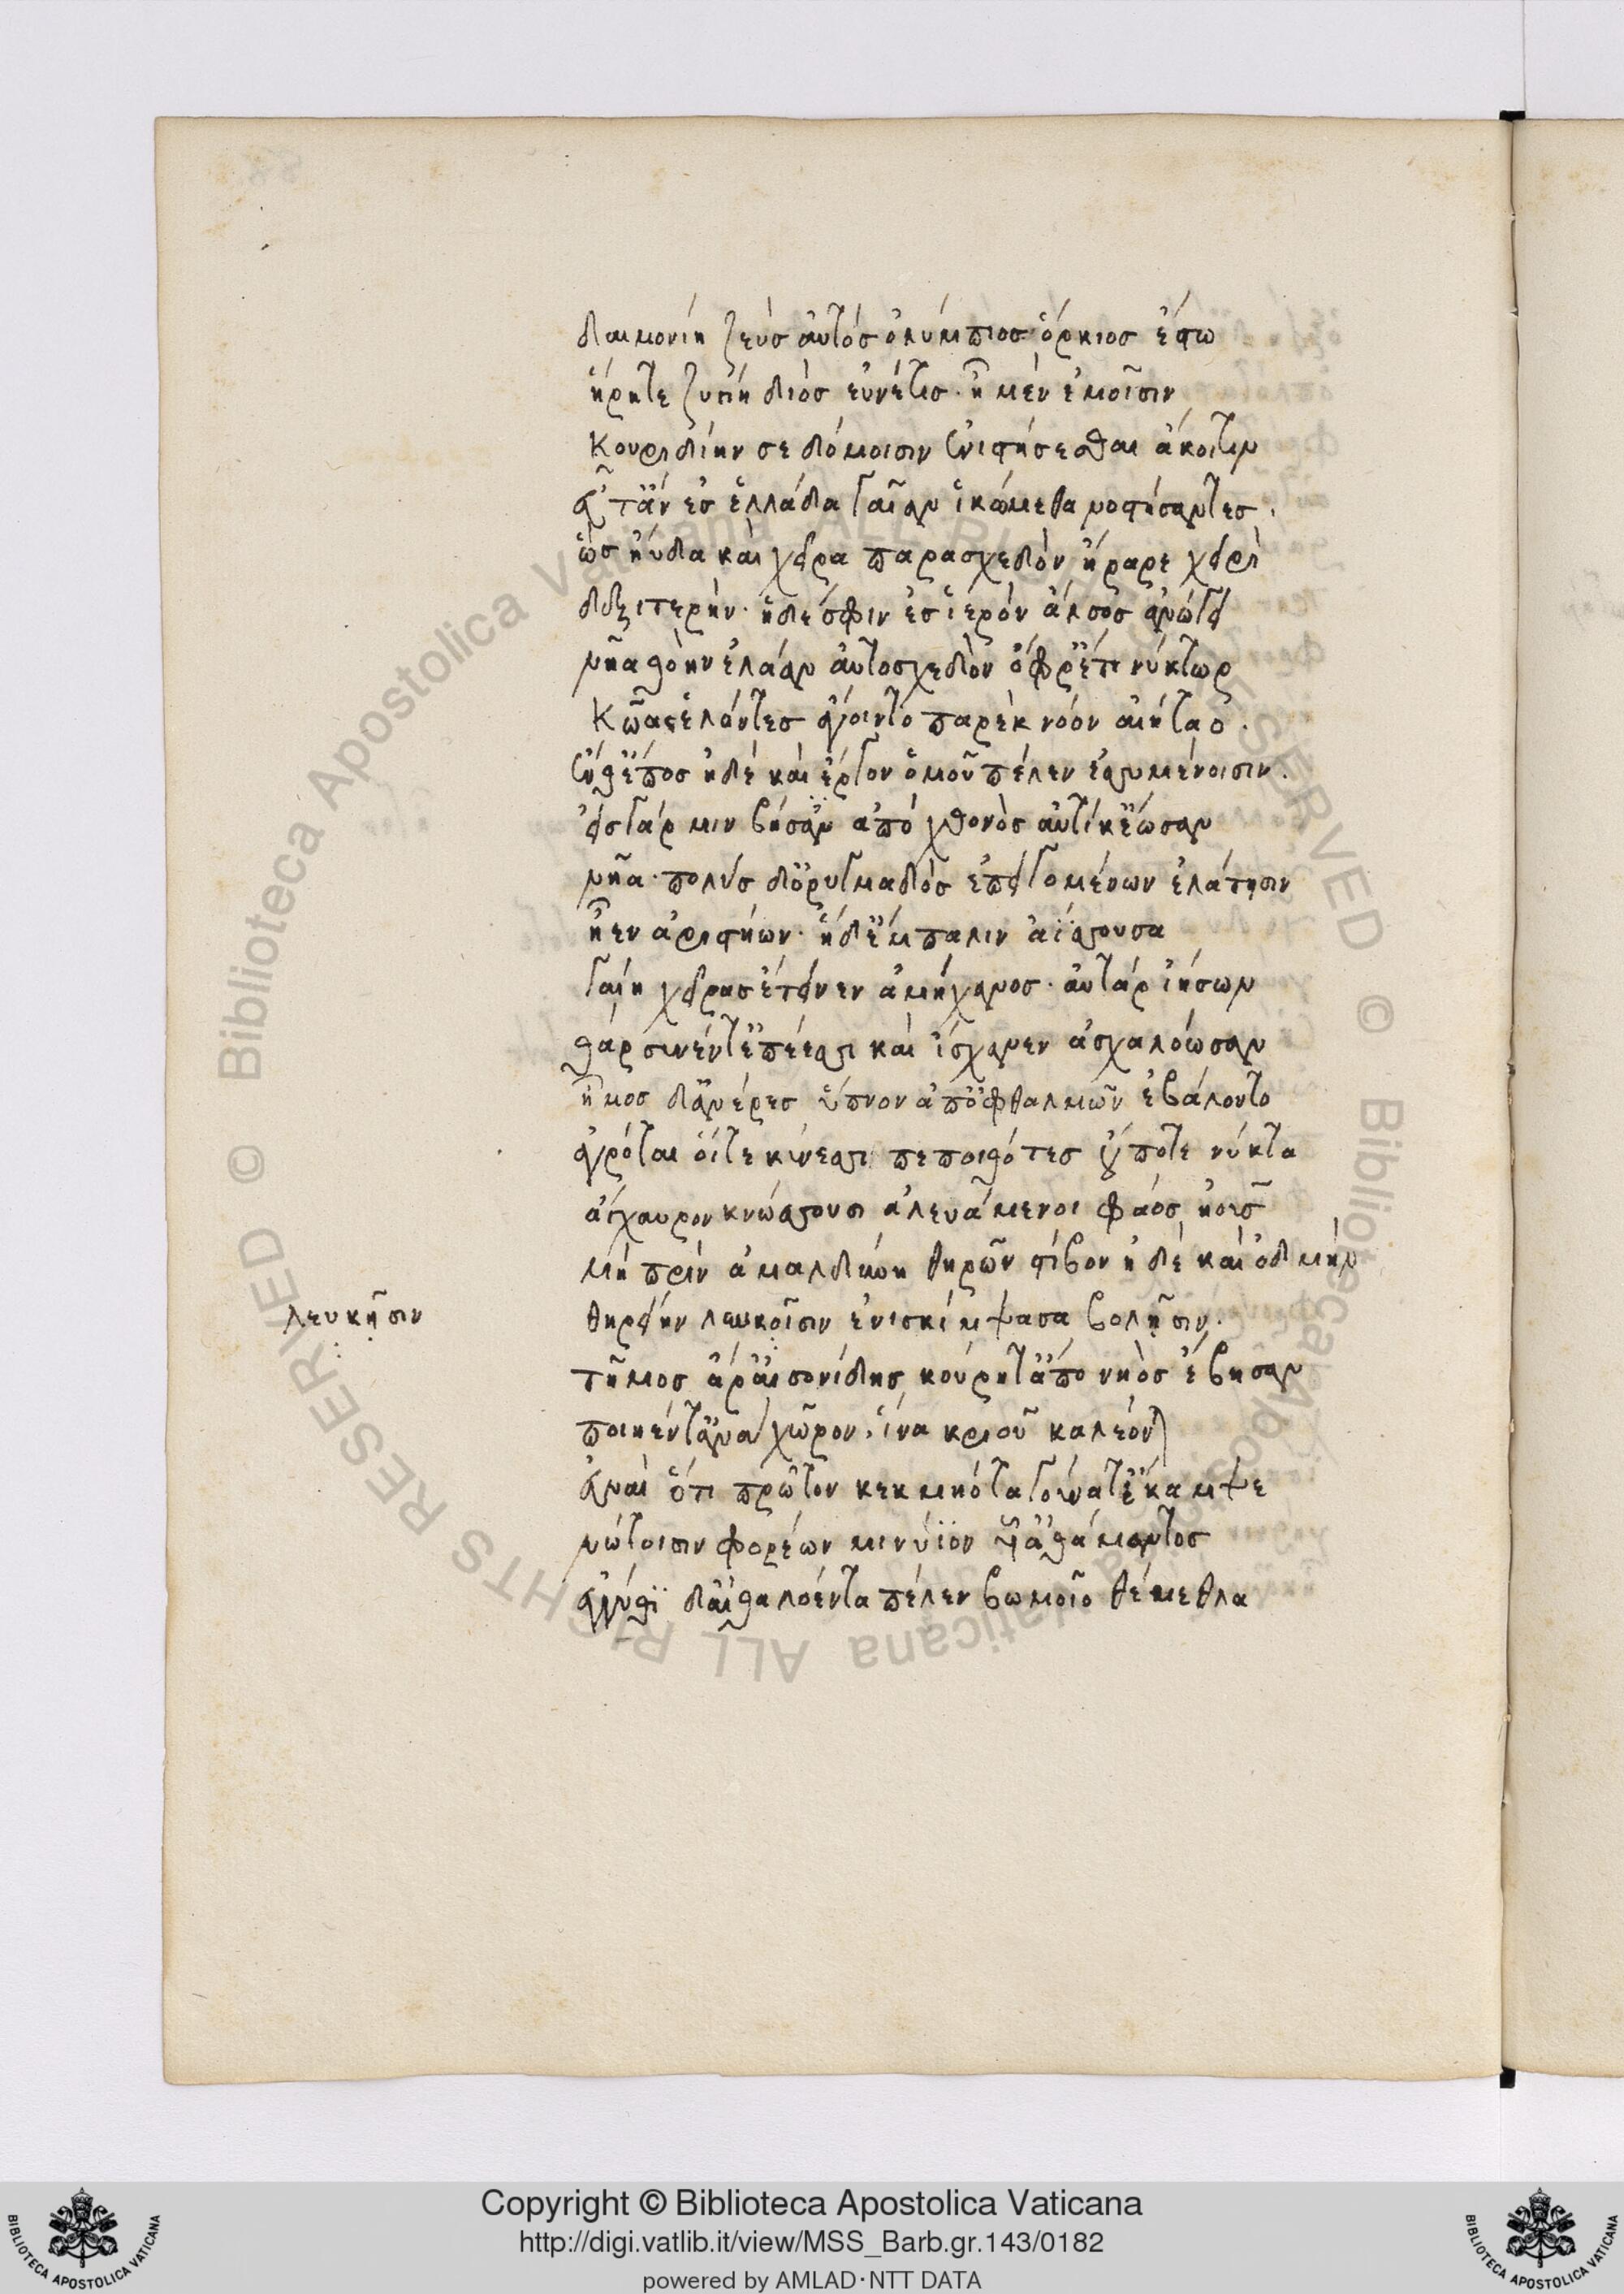 δαιμονίη ζεὺσ αὐτὸσ ὀλύμπιοσ ὅρκιοσ ἔστω
ἥρητε ζυγίη διὸσ εὐνέτισ· ἦ μὲν ἐμοῖσιν
κουριδίην σε δόμοισιν ἐνιστήσεσθαι ἄκοιτιν
εὖτ' ἂν ἐσ ἑλλάδα γαῖαν ἱκώμεθα νοστήσαντεσ.
ὣσ ηὔδα καὶ χεῖρα παρασχεδὸν ἤραρε χειρὶ
δεξιτερήν· ἡ δέ σφιν ἐσ ἱερὸν ἄλσοσ ἀνώγει
νῆα θοὴν ἐλάαν αὐτοσχεδὸν ὄφρ' ἔτι νύκτωρ
κῶας ἑλόντεσ ἄγοιντο παρὲκ νόον αἰήταο.
ἔνθ' ἔποσ ἠδὲ καὶ ἔργον ὁμοῦ πέλεν ἐσσυμένοισιν.
εἰσ γάρ μιν βήσαντ' ἀπὸ χθονὸσ αὐτίκ' ἔωσαν
νῆα· πολὺσ δ' ὀρυγμαδὸσ ἐπειγομένων ἐλάτησιν
ἦεν ἀριστήων· ἡ δ' ἔμπαλιν ἀΐσσουσα
γαίη χεῖρασ ἔτεινεν ἀμήχανοσ· αὐτὰρ ἰήσων
θάρσυνέν τ' ἐπέεσσι καὶ ἴσχανεν ἀσχαλόωσαν
ἦμοσ δ' ἀνέρεσ ὕπνον ἀπ' ὀφθαλμῶν ἐβάλοντο
ἀγρόται οἵτε κύνεσσι πεποιθότεσ οὔποτε νύκτα
ἄγχαυρον κνώσσουσι ἀλευάμενοι φάοσ ἠοῦσ
μὴ πρὶν ἀμαλδύνη θηρῶν στίβον ἠδὲ καὶ ὀδμὴν
θηρείην λευκοῖσιν ἐνισκίμψασα βολῇσιν.
λευκῇσιν
τῆμοσ ἄρ' αἰσονίδησ κούρητ' ἀπὸ νηὸσ ἔβησαν
ποιήεντ' ἀνὰ χῶρον, ἵνα κριοῦ καλέονται
εὐναὶ ὅτι πρῶτον κεκμηότα γούνατ' ἔκαμψε
νώτοισιν φορέων μινυϊὸν υἷ' ἀθάμαντοσ
ἐγγύθι δ' αἰθαλόεντα πέλεν βωμοῖο θέμεθλα
Copyright © Biblioteca Apostolica Vaticana
http://digi.vatlib.it/view/MSS_Barb.gr.143/0182
powered by AMLAD·NTT DATA